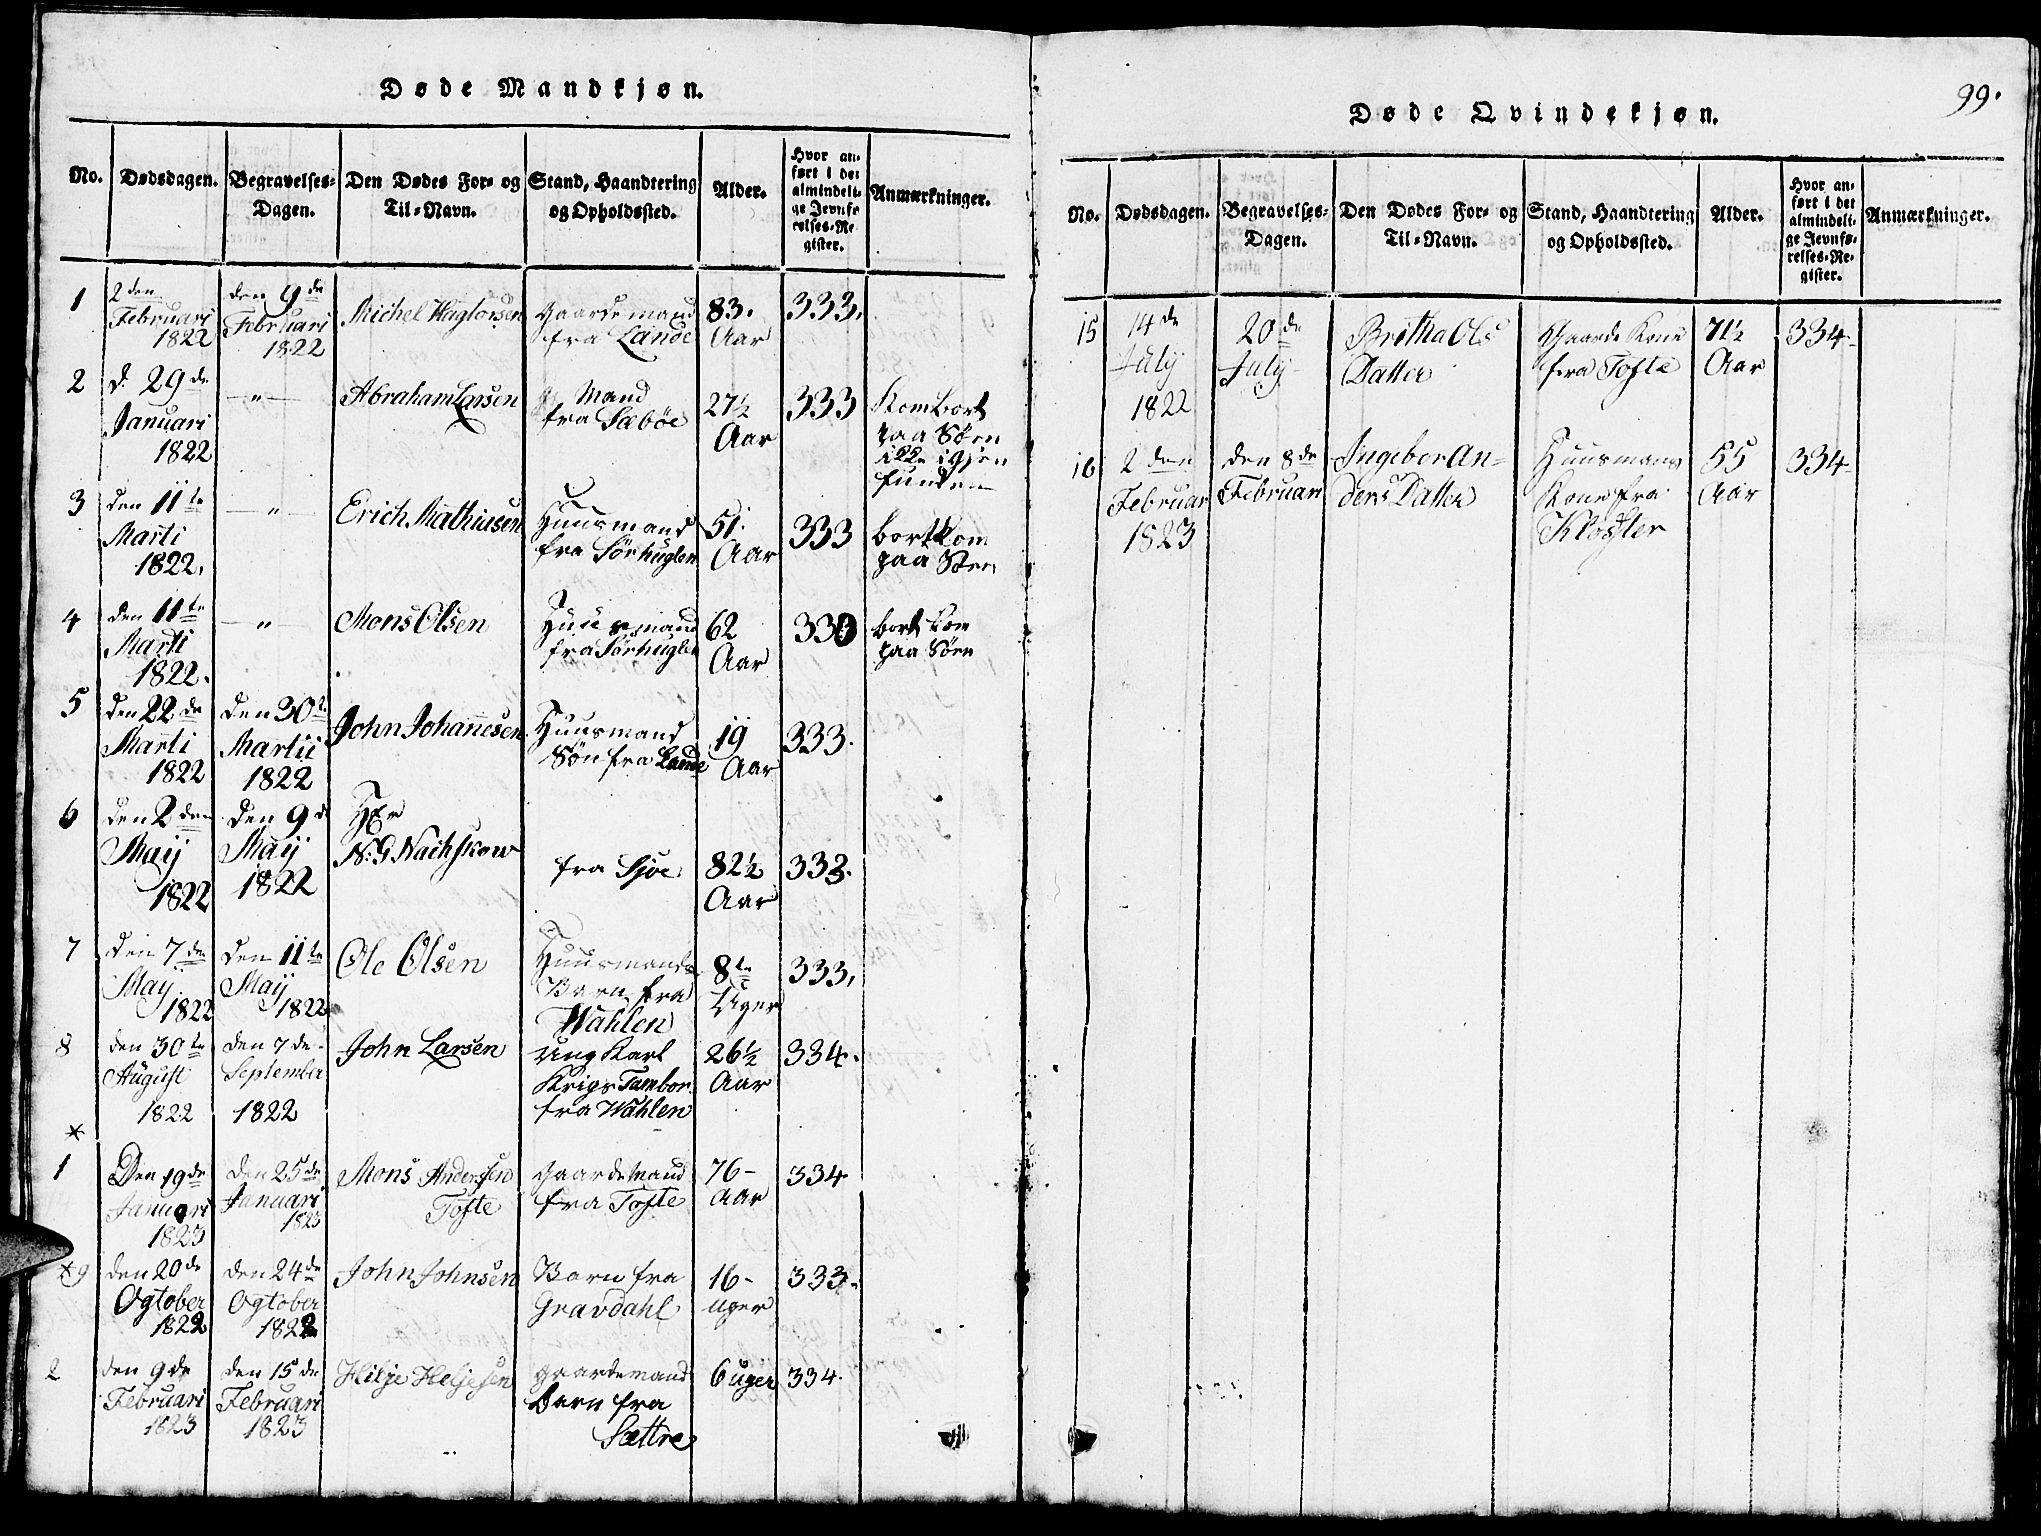 Døde Mandkjøn.
No.
Dødsdagen.
Begravelses-
Dagen.
Den Dødes For- og
Til-Navn.
Stand, Haandtering
og Opholdssted.
Alder.
Hvor an-
ført i det
almindeli-
ge Jevnfø-
relses-Re-
gister.
Anmærkninger.
1
2den
Februari
1822
den 9de
Februari
1822
Michel Haglorsen
Gaardemand
fra Lande
83.
Aar
333.
2
d. 29de
Januari
1822
—"—
Abraham Larsen
G Mand
fra Sæbøe
27½
Aar
333
Kom bort
paa Søen
ikke igjen
funden
3
den 11te
Marti
1822.
—"—
Erich Mathiasen
Huusmand
fra Sørhuglen
51.
Aar
333
bortkom
paa Søen
4
den 11te
Marti
1822.
—"—
Mons Olsen
Huusmand
fra Sørhuglen
62
Aar
333
bortkom
paa Søen
5
den 22de
Marti
1822
den 30te
Martii
1822
John Johanesen
Huusmand
Søn fra Lande
19
Aar
333.
6
den 2den
Maij
1822
den 9de
Maij
1822
Hr
N: G Nachskow
fra Sjoe
82½
Aar
333.
7
den 7de
May
1822
den 11te
Maij
1822
Ole Olsen
Huusmands
Barn fra
Wahlen
8te
Uger
333.
8
den 30te
August
1822
den 7de
September
1822
John Larsen
Ung Karl
Krigs Tambor
fra Wahlen
26½
Aar
334.
*
1
Den 19de
Januari
1823
den 25de
Januari
1823
Mons Andersen
Tofte
Gaardemand
fra Tofte
76-
Aar
334
*9
den 20de
Ogtober
1822
den 24de
Ogtober
1822
John Johnsen
Barn fra
Gravdahl
16-
uger
333.
2
den 9de
Februari
1823
den 15de
Februari
1823
Hilje Heljesen
gaardemand
Barn fra
Sættre
6 uger
334.
99.
Døde Qvindekjøn.
No.
Dødsdagen.
Begravelses-
Dagen.
Den Dødes For- og
Til-Navn.
Stand, Haandtering
og Opholdssted.
Alder.
Hvor an-
ført i det
almindeli-
ge Jevnfø-
relses-Re-
gister.
Anmærkninger.
15
14de
July
1822
20de
July
Britha Ols
Datter
Gaarde Kone
fra Tofte
71½
Aar
334-
16
2den
Februar
1823
den 8de
Februari
Ingebor An-
ders Datter
Huusmans
Kone fra
Kloster
55
Aar
334-